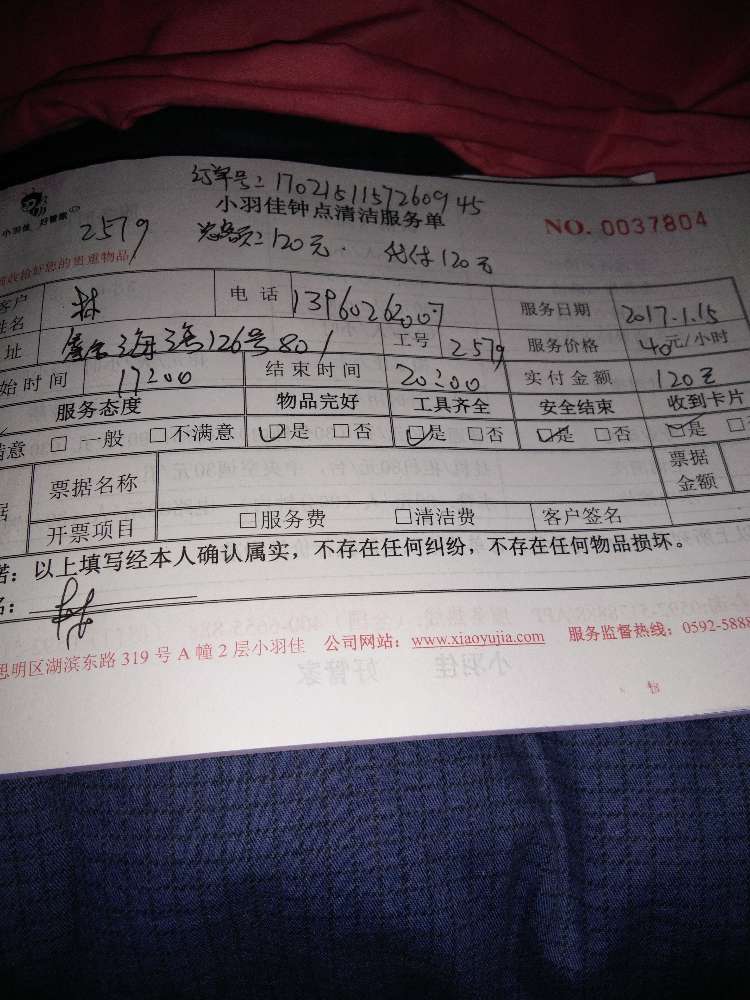 订单号: 17021511572609 45
小羽佳 好管家
小羽佳钟点清洁服务单
NO. 0037804
2579
总额: 120元. 代付120元
请收拾好您的贵重物品
客户姓名 林 电话 13960262007 服务日期 2017.1.15
址 126号801 工号 2579 服务价格 40元/小时
始时间 17:00 结束时间 20:00 实付金额 120元
服务态度 物品完好 工具齐全 安全结束 收到卡片
满意 □一般 □不满意 是 □否 是 □否 是 □否 是
据 票据名称 票据金额
开票项目 □服务费 □清洁费 客户签名
诺: 以上填写经本人确认属实,不存在任何纠纷,不存在任何物品损坏。
名: 林
思明区湖滨东路 319 号 A 幢 2 层小羽佳 公司网站: www.xiaoyujia.com 服务监督热线: 0592-5888